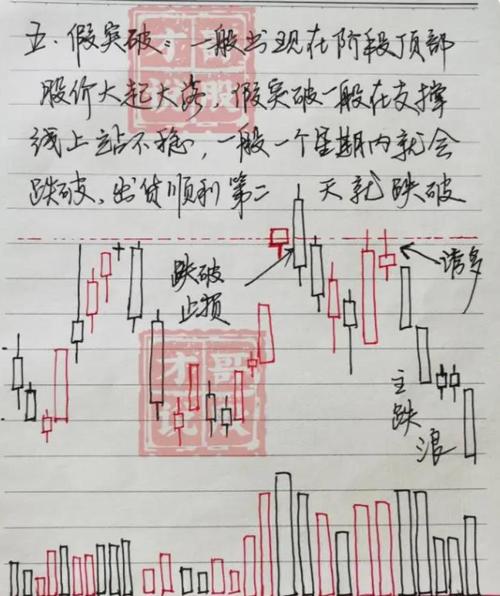 五. 假突破: 一般出现在阶段顶部
股价大起大落, 假突破一般在支撑
线上站不稳, 一般一个星期内就会
跌破、出货顺利第二天就跌破
跌破
止损
诱多
主
跌
浪
才哥
说股
才哥
说股